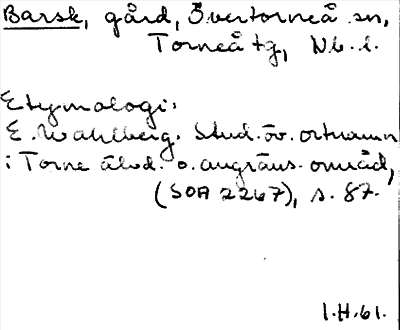 Barsk, gård, Övertorneå sn,
Torneå tg, Nb. l.
Etymologi:
E. Wahlberg. Stud. öv. ortnamn
i Torne älvd. o. angräns. område,
(SOA 2267), s. 87.
I.H.61.